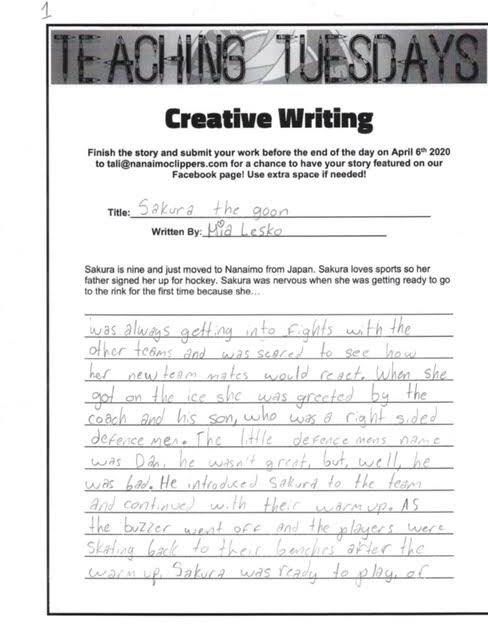 1
TEACHING TUESDAYS
Creative Writing
Finish the story and submit your work before the end of the day on April 6th 2020
to tali@nanaimoclippers.com for a chance to have your story featured on our
Facebook page! Use extra space if needed!
Title: Sakura the goon
Written By: Mia Lesko
Sakura is nine and just moved to Nanaimo from Japan. Sakura loves sports so her
father signed her up for hockey. Sakura was nervous when she was getting ready to go
to the rink for the first time because she…
was always getting into fights with the
other teams and was scared to see how
her new team mates would react. When she
got on the ice she was greeted by the
coach and his son, who was a right sided
defence men. The little defence mens name
was Dan, he wasn't great, but, well, he
was bad. He introduced Sakura to the team
and continued with their warm up. AS
the buzzer went off and the players were
skating back to their benches after the
warm up, Sakura was ready to play, or